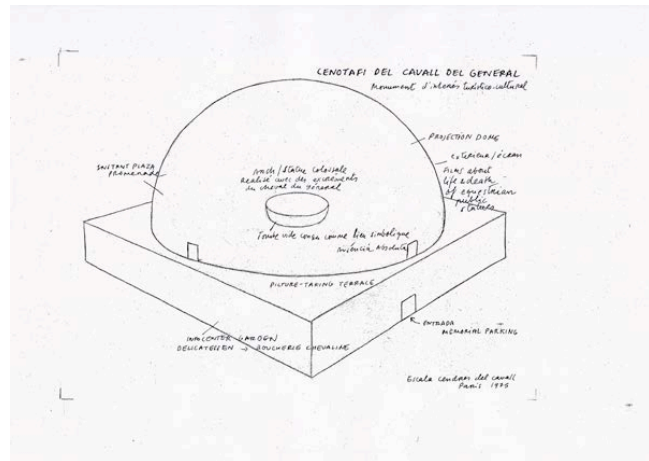 CENOTAFI DEL CAVALL DEL GENERAL
Monument d'interès turístico-cultural
PROJECTION DOME
extérieur/écran
FILMS ABOUT
life & death
of equestrian
public
statues
INSTANT PLAZA
PROMENADE
statue colossale
réalisé avec des excréments
du cheval du général
vide conçu comme bien symbolique
absoluta
PICTURE-TAKING TERRACE
INFOCENTER GARDEN
DELICATESSEN → BOUCHERIE CHEVALINE
ENTRADA
MEMORIAL PARKING
Escala cendres del cavall
Paris 1975